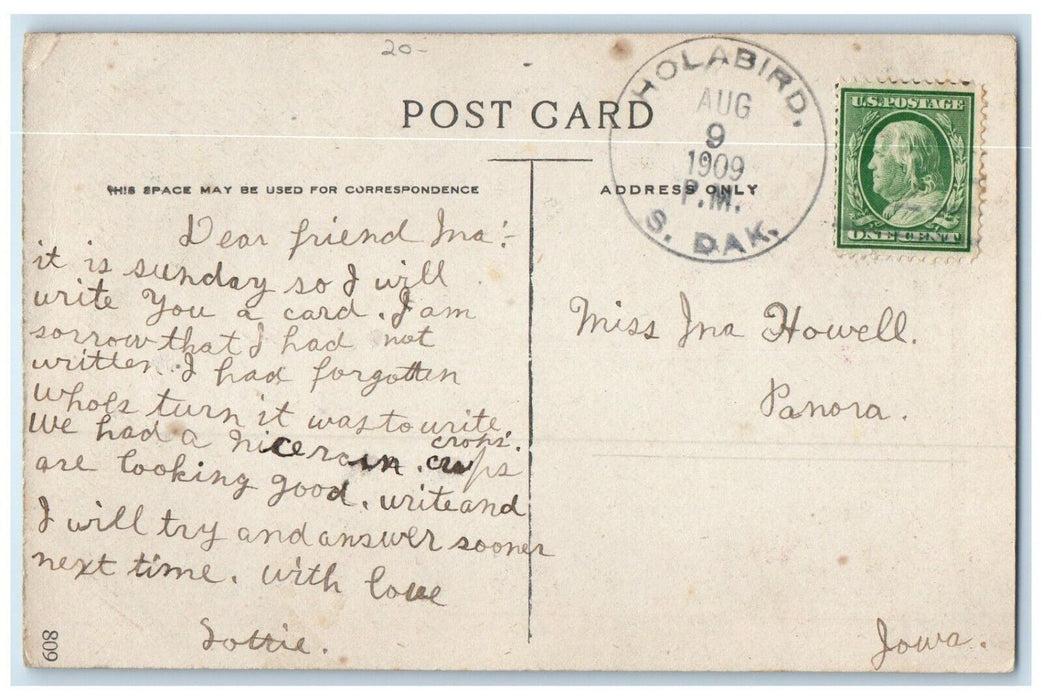 20-
POST CARD
THIS SPACE MAY BE USED FOR CORRESPONDENCE
ADDRESS ONLY
HOLABIRD,
AUG
9
1909
P.M.
S. DAK.
U.S. POSTAGE
ONE CENT
Dear friend Ina:-
it is sunday so I will
write You a card. I am
sorrow that I had not
written. I had forgotten
whols turn it was to write.
We had a nice rain. crops
crops.
are looking good. write and
I will try and answer sooner
next time. with love
Lottie.
Miss Ina Howell.
Panora.
Iowa.
608